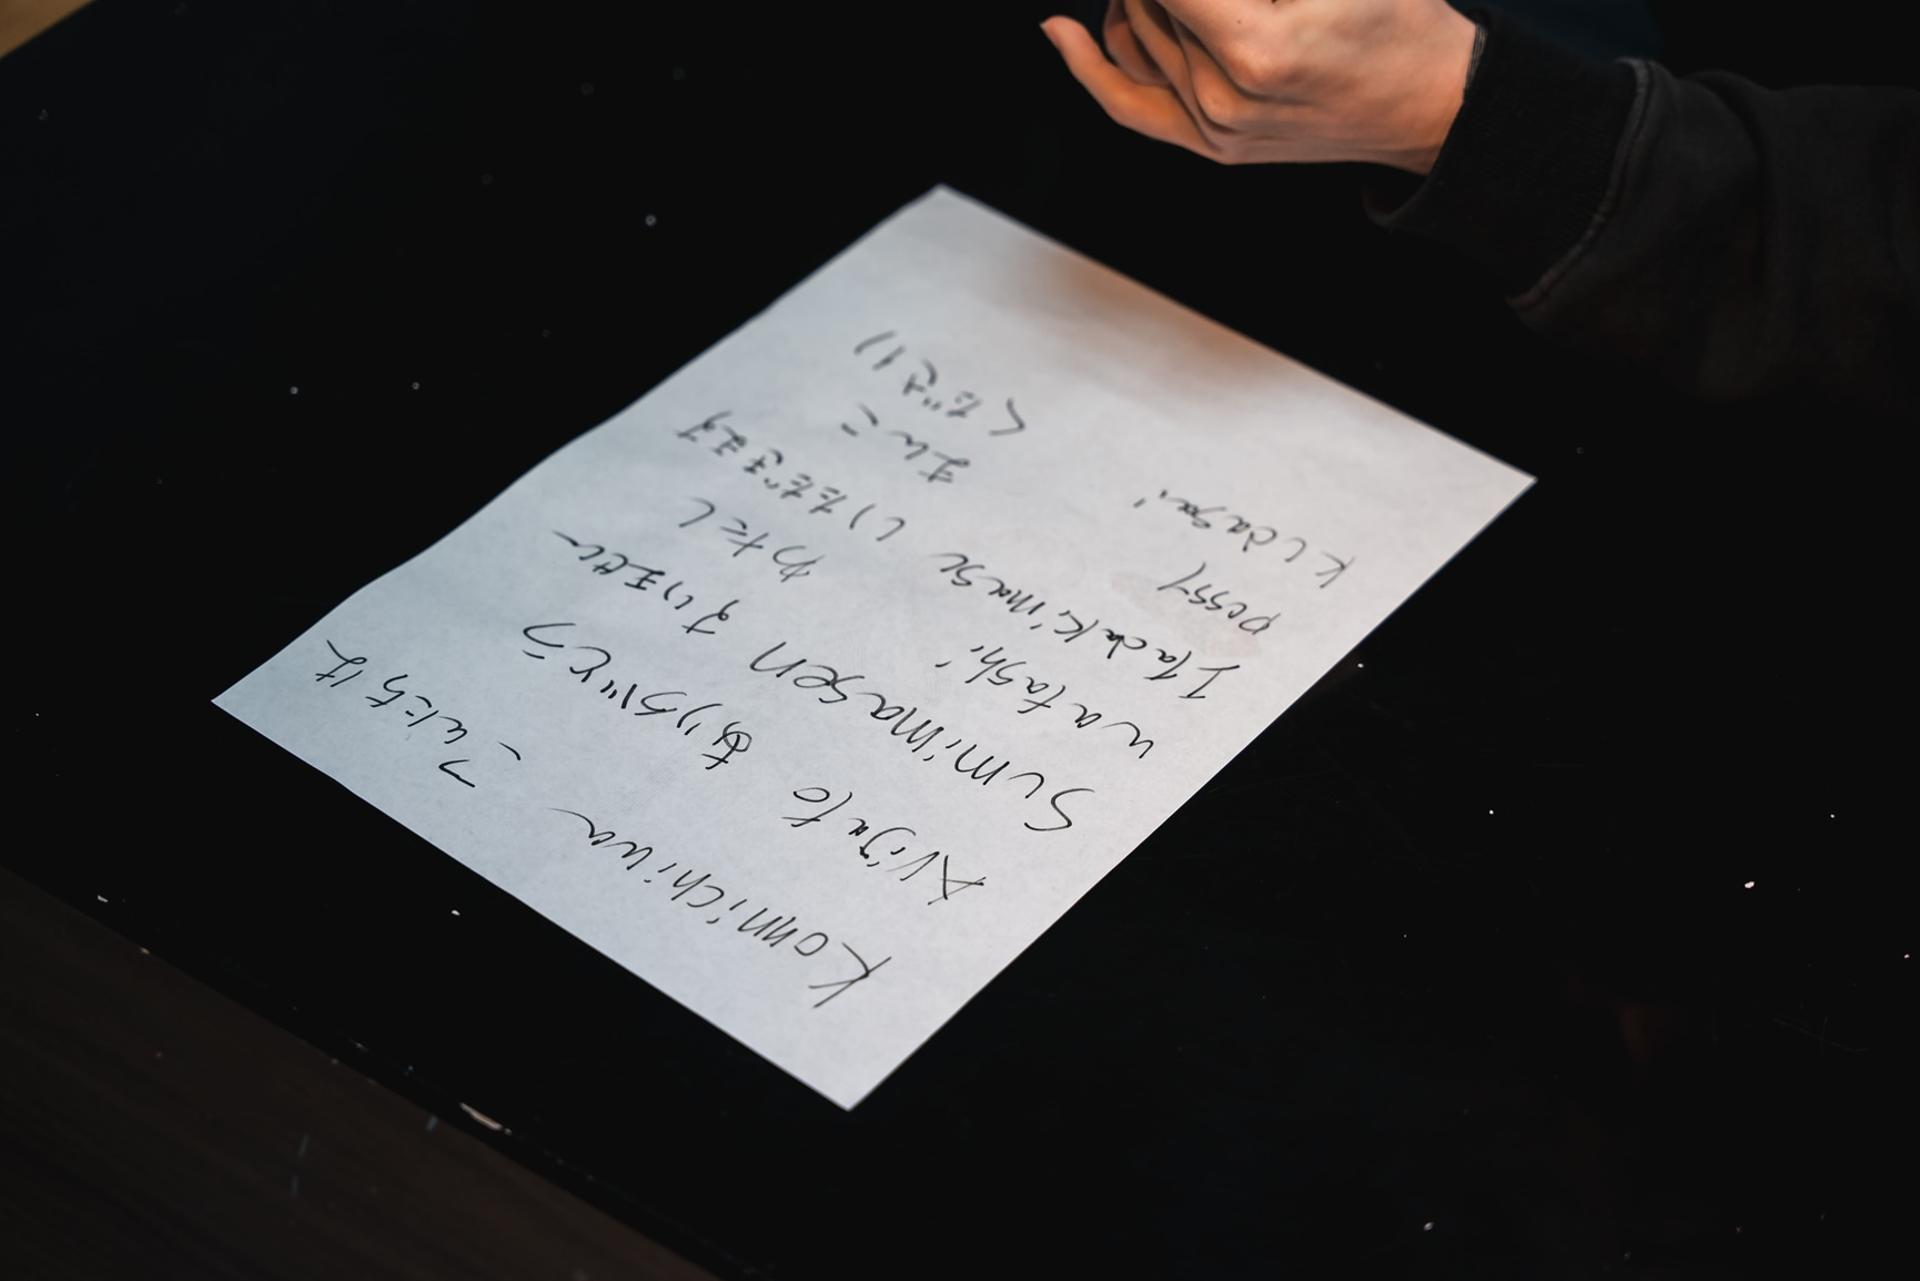 Konnichiwa こんにちは
Arigato ありがとう
Sumimasen すいません
watashi わたし
Itadakimasu いただきます
pussy まんこ
Kudasai ください